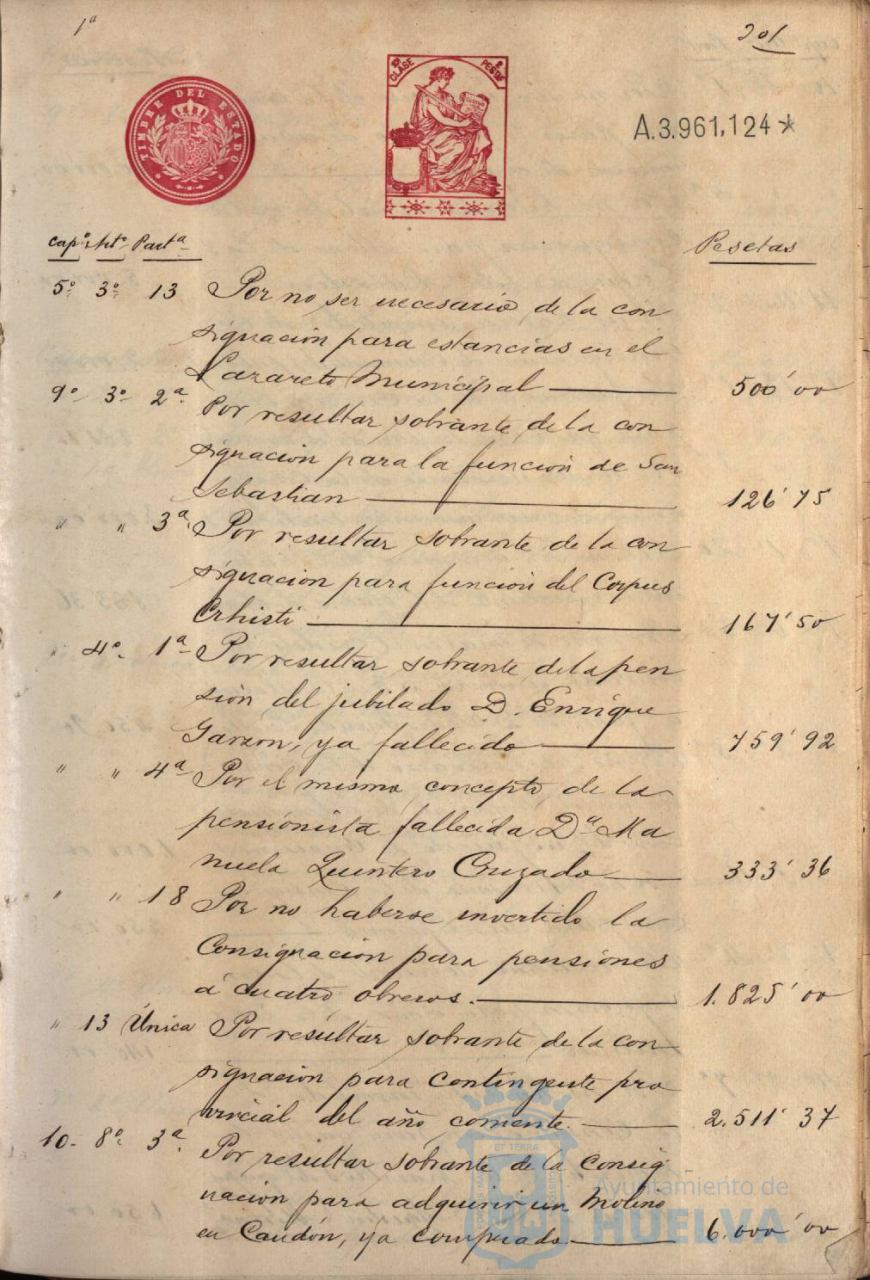 1ª
201
TIMBRE DEL ESTADO
CLASE
PESETAS
A.3.961,124*
Capº Artº Partª Pesetas
5º 3º 13 Por no ser necesario de la con
signación para estancias en el
Lazareto Municipal 500'00
9º 3º 2ª Por resultar sobrante de la con
signación para la función de San
Sebastian 126'75
" " 3ª Por resultar sobrante de la con
signación para función del Corpus
Crhisti 167'50
" 4º 1ª Por resultar sobrante de la pen
sión del jubilado D. Enrique
Garzon, ya fallecido 759'92
" " 4ª Por el mismo concepto de la
pensionista fallecida Dª Ma
nuela Quintero Cruzado 333'36
" " 18 Por no haberse invertido la
Consignación para pensiones
á cuatro obreros. 1.825'00
" 13 Única Por resultar sobrante de la con
signación para contingente pro
vincial del año corriente. 2.511'37
10 8º 3ª Por resultar sobrante de la consig
nación para adquirir un Molino
en Candón, ya comprado 6.000'00
Ayuntamiento de
HUELVA